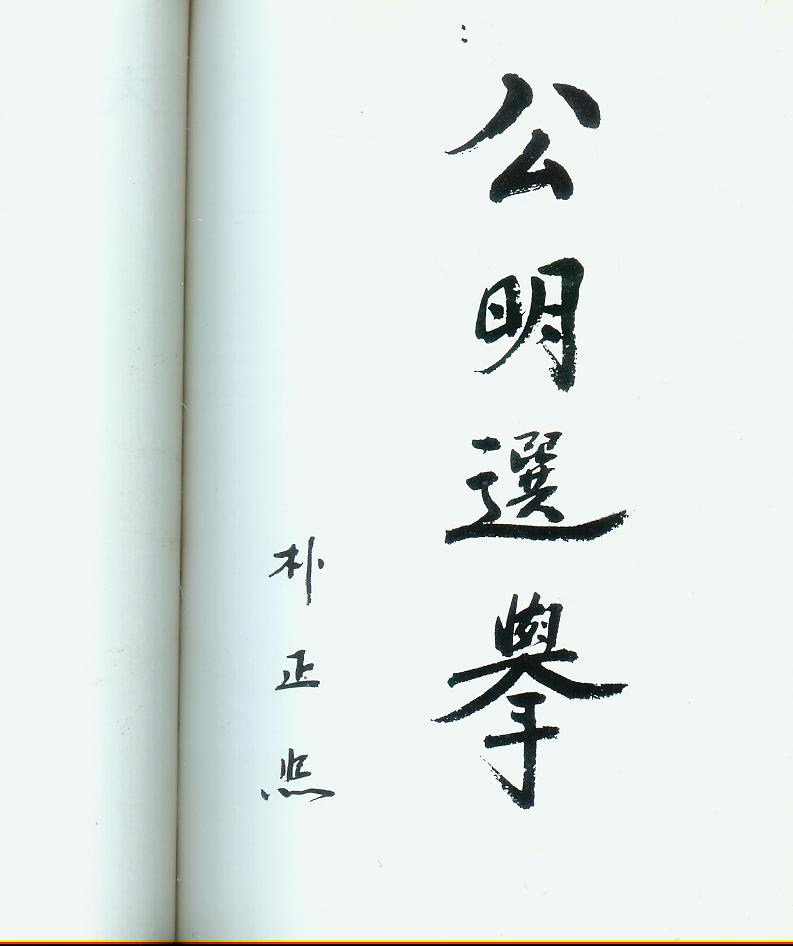 公明選擧
朴正熙